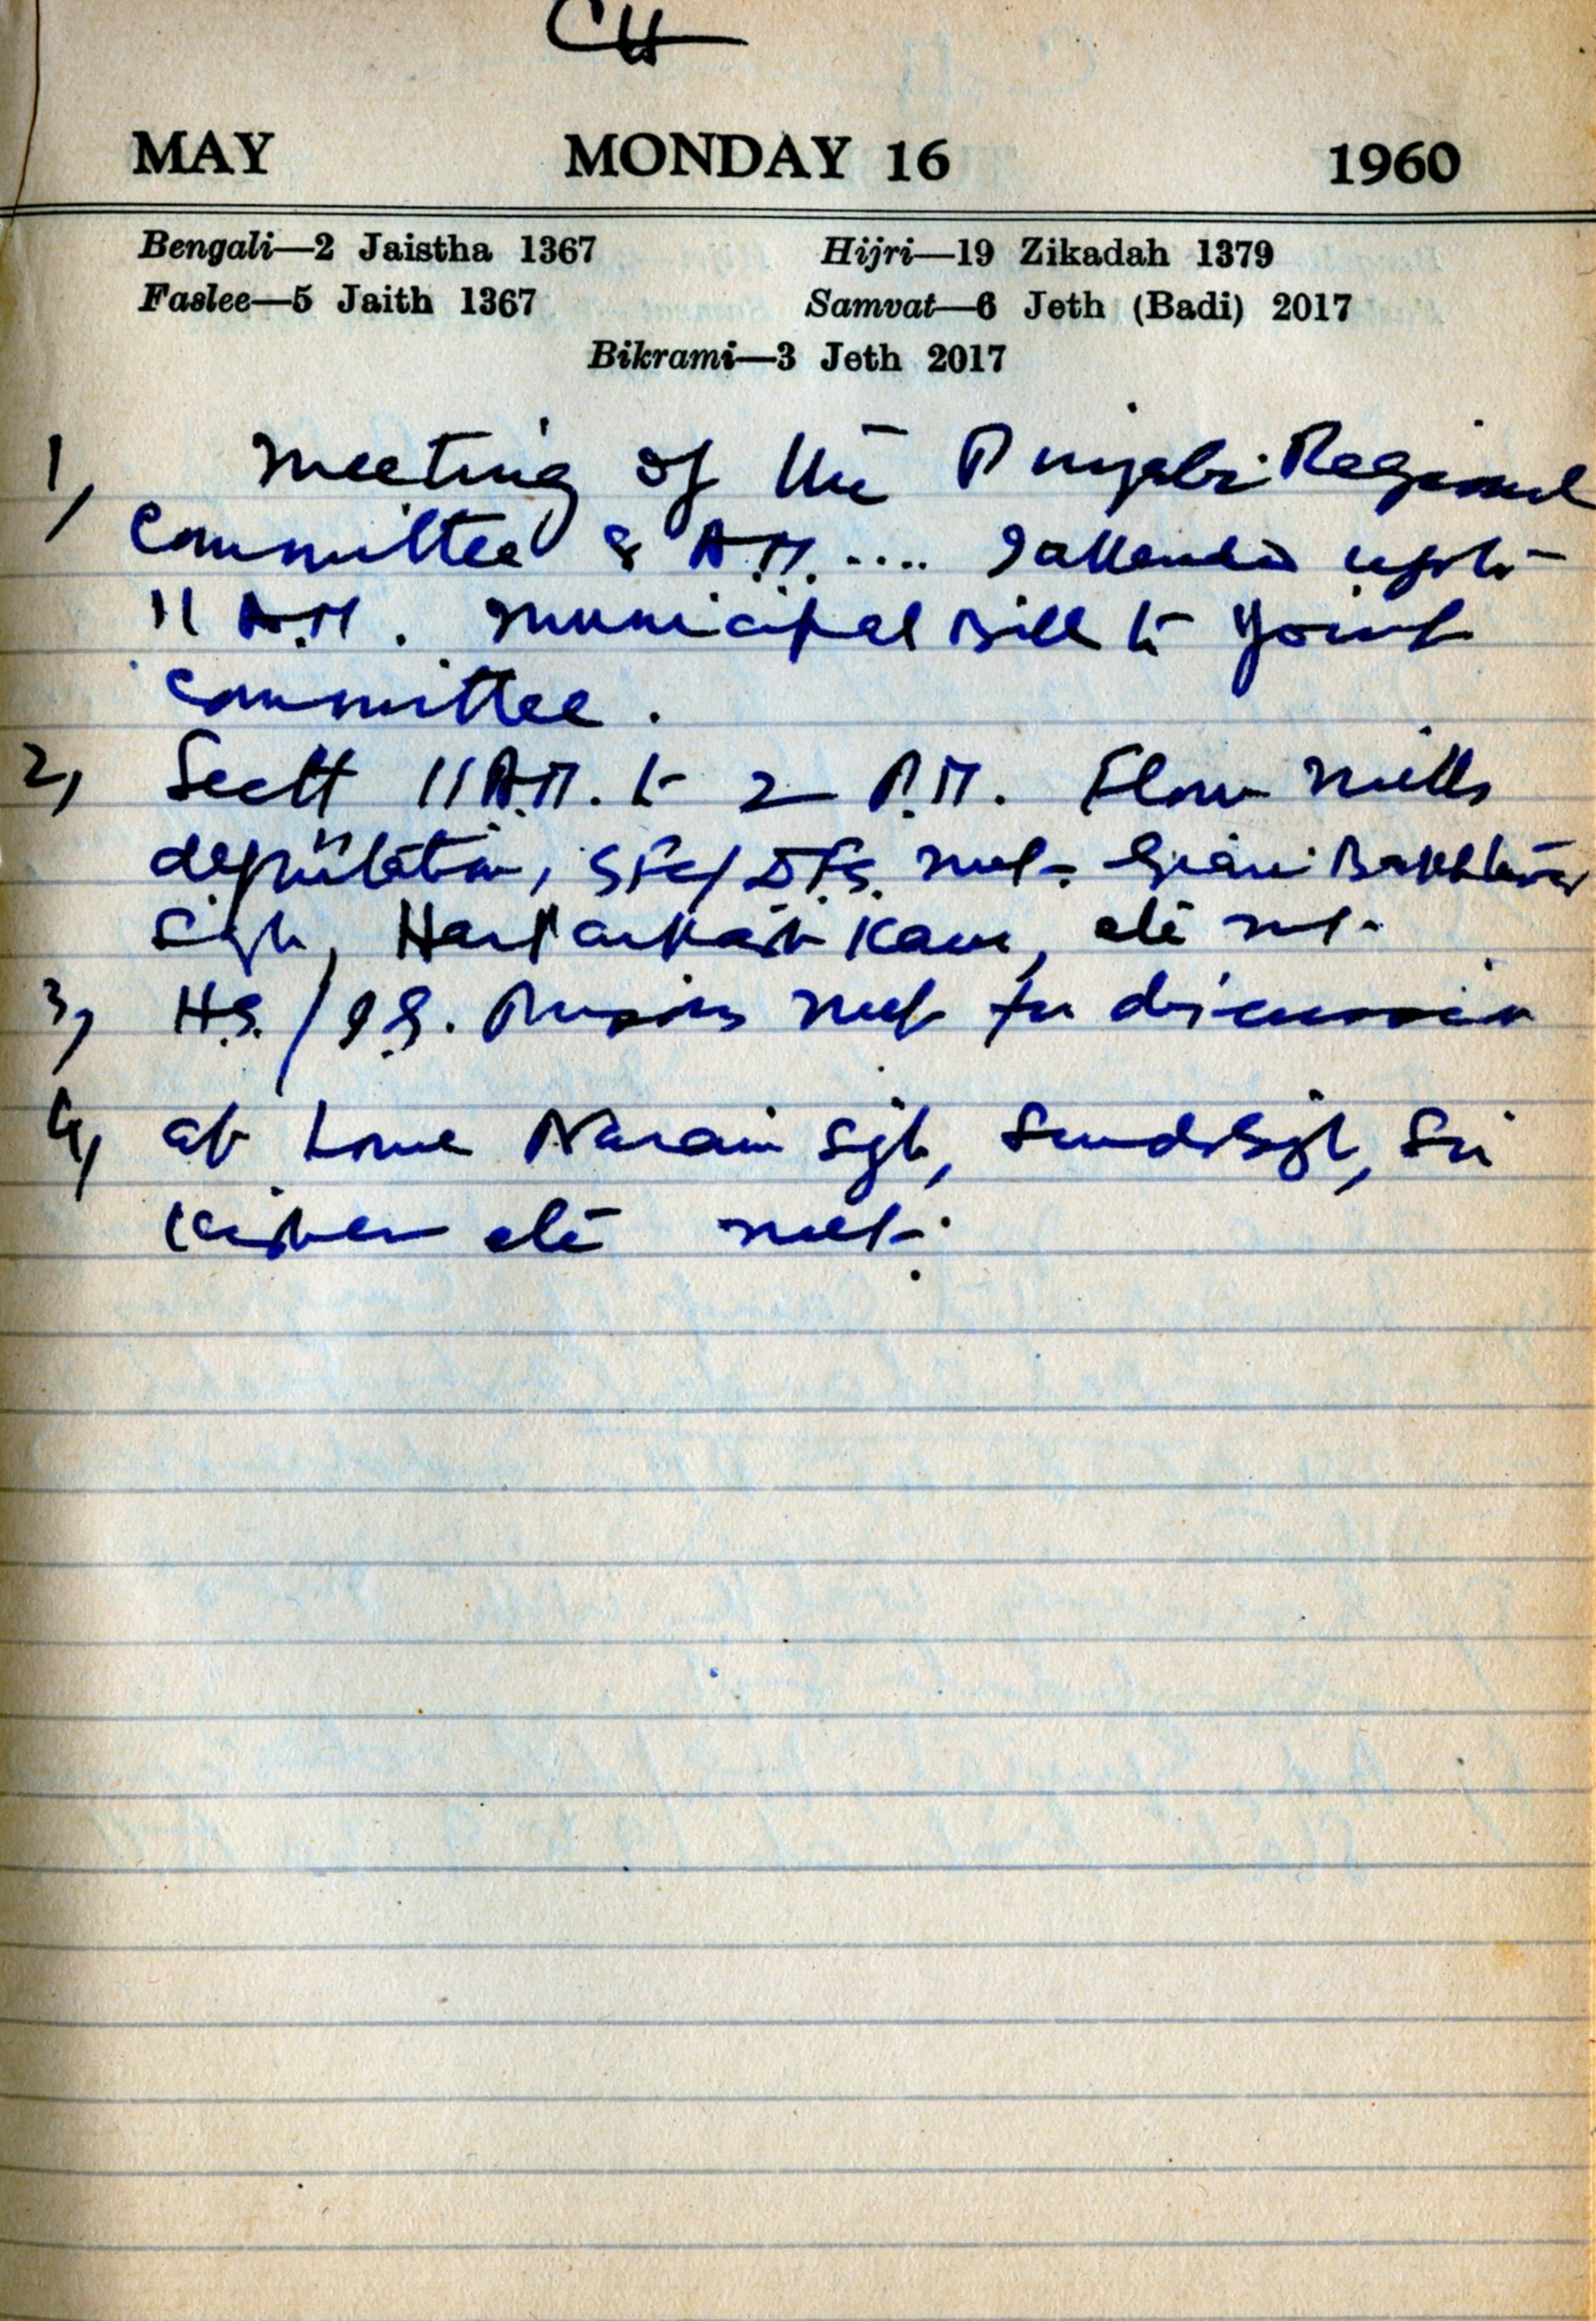 CH
MAY MONDAY 16 1960
Bengali—2 Jaistha 1367 Hijri—19 Zikadah 1379
Faslee—5 Jaith 1367 Samvat—6 Jeth (Badi) 2017
Bikrami—3 Jeth 2017
1, Meeting of the Punjabi Regional
Committee 8 A.M. .... I attended upto
11 A.M. Municipal Bill to Joint
Committee.
2, Sectt 11 A.M. to 2 P.M. Flour Mills
deputation, SFC/DFS. met. Giani Bakhtawar
Sigh, Harparkash Kaur, etc met.
3, H.S./I.G. Prisons met for discussion
4, at home Narain Sigh, Sigh, Sri
etc met.